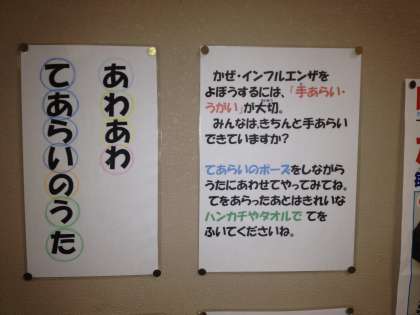 あわあわ
てあらいのうた
かぜ・インフルエンザを
よぼうするには、「手あらい・
うがい」が大切。
みんなは、きちんと手あらい
できていますか?
てあらいのポーズをしながら
うたにあわせてやってみてね。
てをあらったあとはきれいな
ハンカチやタオルで てを
ふいてくださいね。